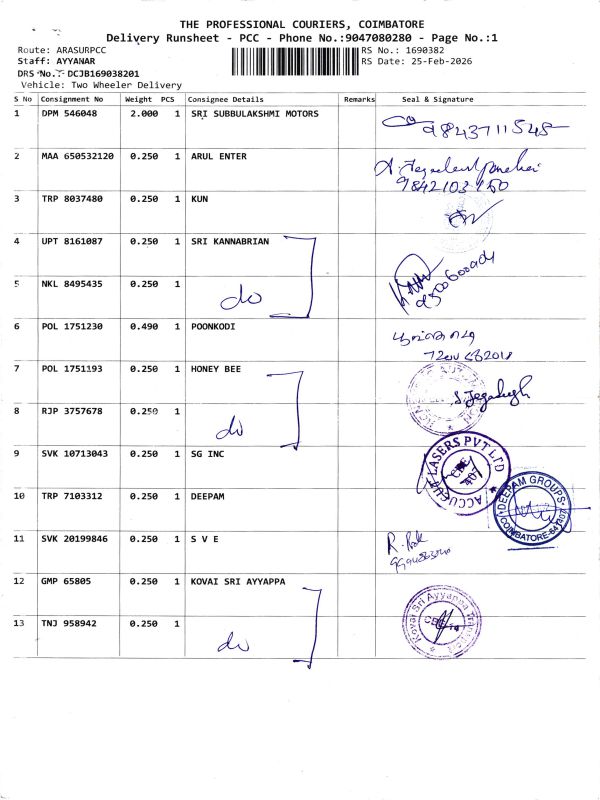 THE PROFESSIONAL COURIERS, COIMBATORE
Delivery Runsheet - PCC - Phone No.:9047080280 - Page No.:1
Route: ARASURPCC
RS No.: 1690382
Staff: AYYANAR
RS Date: 25-Feb-2026
DRS No.: DCJB169038201
Vehicle: Two Wheeler Delivery
S No Consignment No Weight PCS Consignee Details Remarks Seal & Signature
1 DPM 546048 2.000 1 SRI SUBBULAKSHMI MOTORS 9843711548
2 MAA 650532120 0.250 1 ARUL ENTER
9842103150
3 TRP 8037480 0.250 1 KUN
4 UPT 8161087 0.250 1 SRI KANNABRIAN
5 NKL 8495435 0.250 1 do
6 POL 1751230 0.490 1 POONKODI
7 POL 1751193 0.250 1 HONEY BEE
8 RJP 3757678 0.250 1 do
9 SVK 10713043 0.250 1 SG INC ACCUCUT LASERS PVT LTD CBE 407
10 TRP 7103312 0.250 1 DEEPAM DEEPAM GROUPS COIMBATORE-641407
11 SVK 20199846 0.250 1 S V E
12 GMP 65805 0.250 1 KOVAI SRI AYYAPPA Kovai Sri Ayyappa
13 TNJ 958942 0.250 1 do